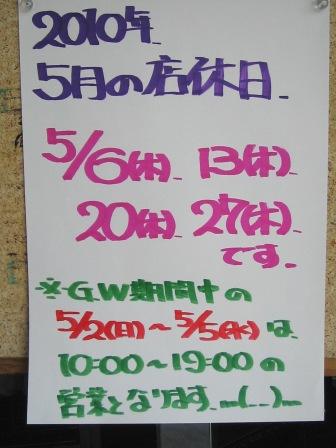 2010年
5月の店休日
5/6(木) 13(木)
20(木) 27(木)
です。
※GW期間中の
5/2(日)〜5/5(水)は、
10:00〜19:00の
営業となります。m(_ _)m